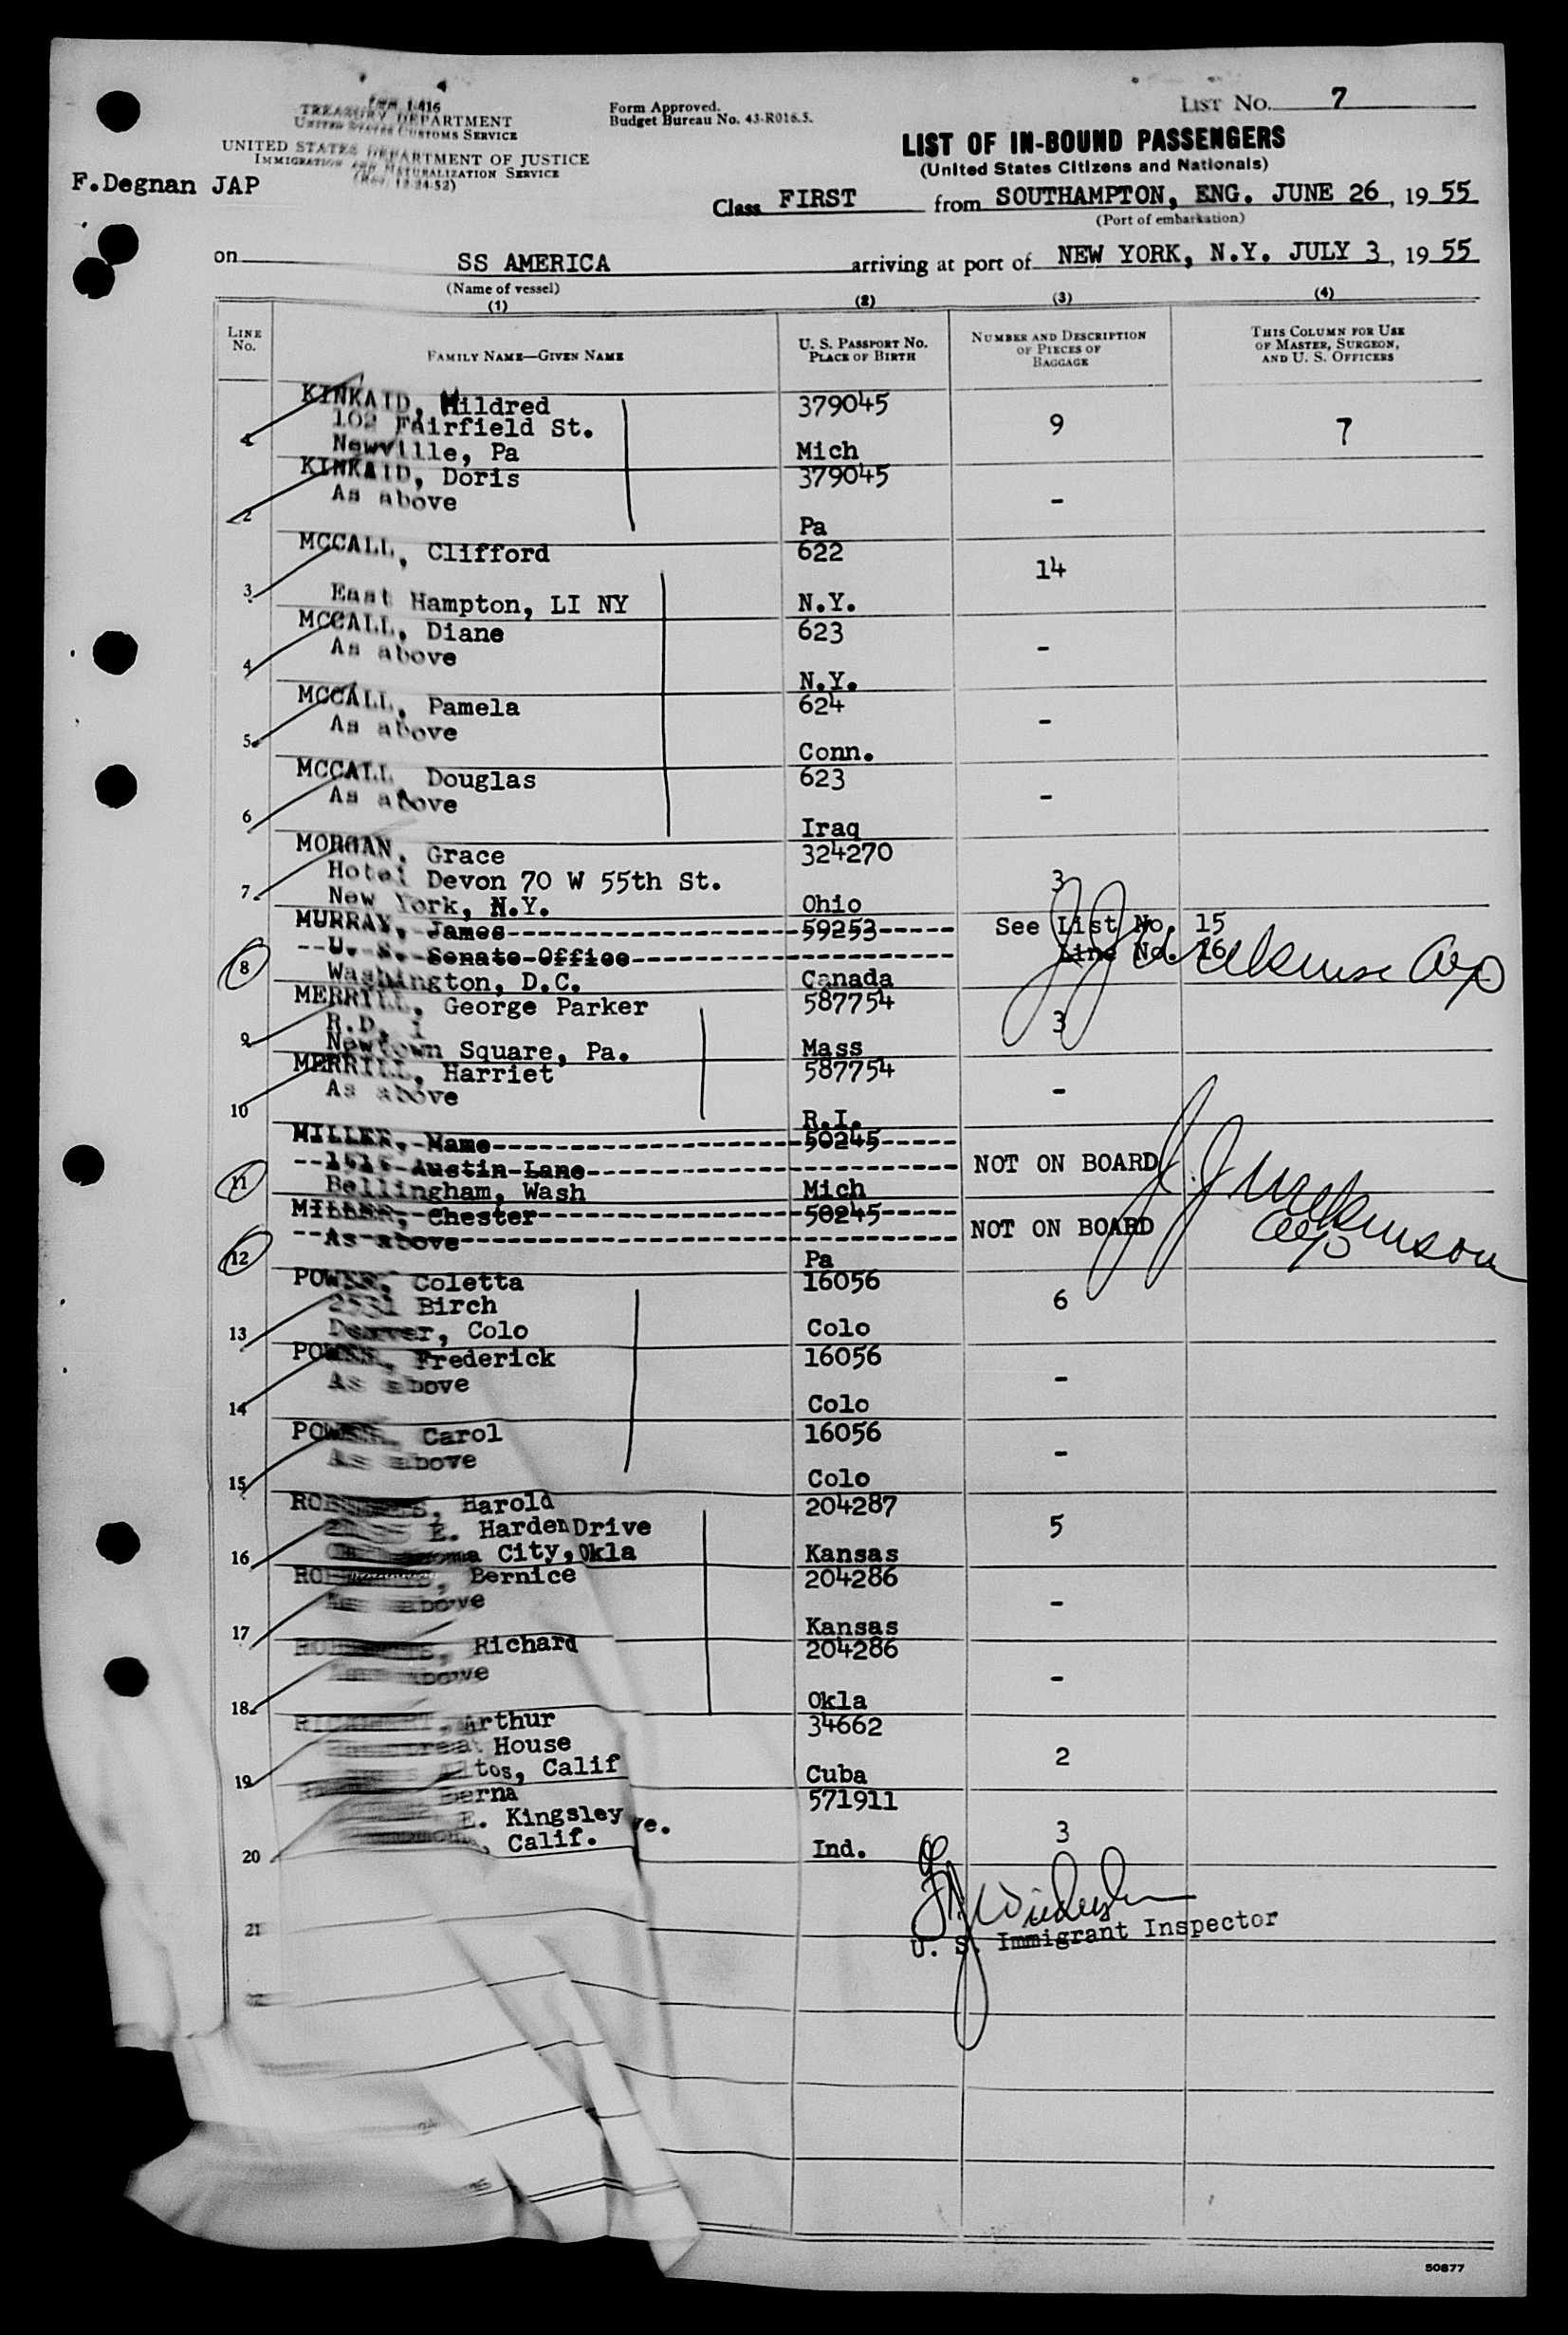 Form I-416
TREASURY DEPARTMENT
UNITED STATES CUSTOMS SERVICE
UNITED STATES DEPARTMENT OF JUSTICE
IMMIGRATION AND NATURALIZATION SERVICE
(Rev. 12-24-52)
Form Approved.
Budget Bureau No. 43-R016.5.
LIST NO. 7
LIST OF IN-BOUND PASSENGERS
(United States Citizens and Nationals)
F.Degnan JAP
Class FIRST from SOUTHAMPTON, ENG. JUNE 26, 1955
(Port of embarkation)
on SS AMERICA arriving at port of NEW YORK, N.Y. JULY 3, 1955
(Name of vessel)
(1) (2) (3) (4)
LINE NO. FAMILY NAME—GIVEN NAME U. S. PASSPORT NO. PLACE OF BIRTH NUMBER AND DESCRIPTION OF PIECES OF BAGGAGE THIS COLUMN FOR USE OF MASTER, SURGEON, AND U. S. OFFICERS
KINKAID, Mildred 379045
102 Fairfield St. 9 7
1 Newville, Pa Mich
KINKAID, Doris 379045
As above -
2 Pa
MCCALL, Clifford 622
14
3 East Hampton, LI NY N.Y.
MCCALL, Diane 623
As above -
4 N.Y.
MCCALL, Pamela 624
As above -
5 Conn.
MCCALL, Douglas 623
As above -
6 Iraq
MORGAN, Grace 324270
Hotel Devon 70 W 55th St. 3
7 New York, N.Y. Ohio
MURRAY, James 59253 See List No. 15
U. S. Senate Office Line No. 16
8 Washington, D.C. Canada
MERRILL, George Parker 587754
R.D. 1 3
9 Newtown Square, Pa. Mass
MERRILL, Harriet 587754
As above -
10 R.I.
MILLER, Mame 50245
Austin Lane NOT ON BOARD
11 Bellingham, Wash Mich
MILLER, Chester 50245 NOT ON BOARD
As above
12 Pa
Coletta 16056
2531 Birch 6
13 Denver, Colo Colo
Frederick 16056
As above -
14 Colo
Carol 16056
As above -
15 Colo
Harold 204287
E. Harden Drive 5
16 City, Okla Kansas
Bernice 204286
As above -
17 Kansas
Richard 204286
above -
18 Okla
Arthur 34662
House 2
19 Altos, Calif Cuba
571911
E. Kingsley 3
20 Calif. Ind.
U. S. Immigrant Inspector
21
50877